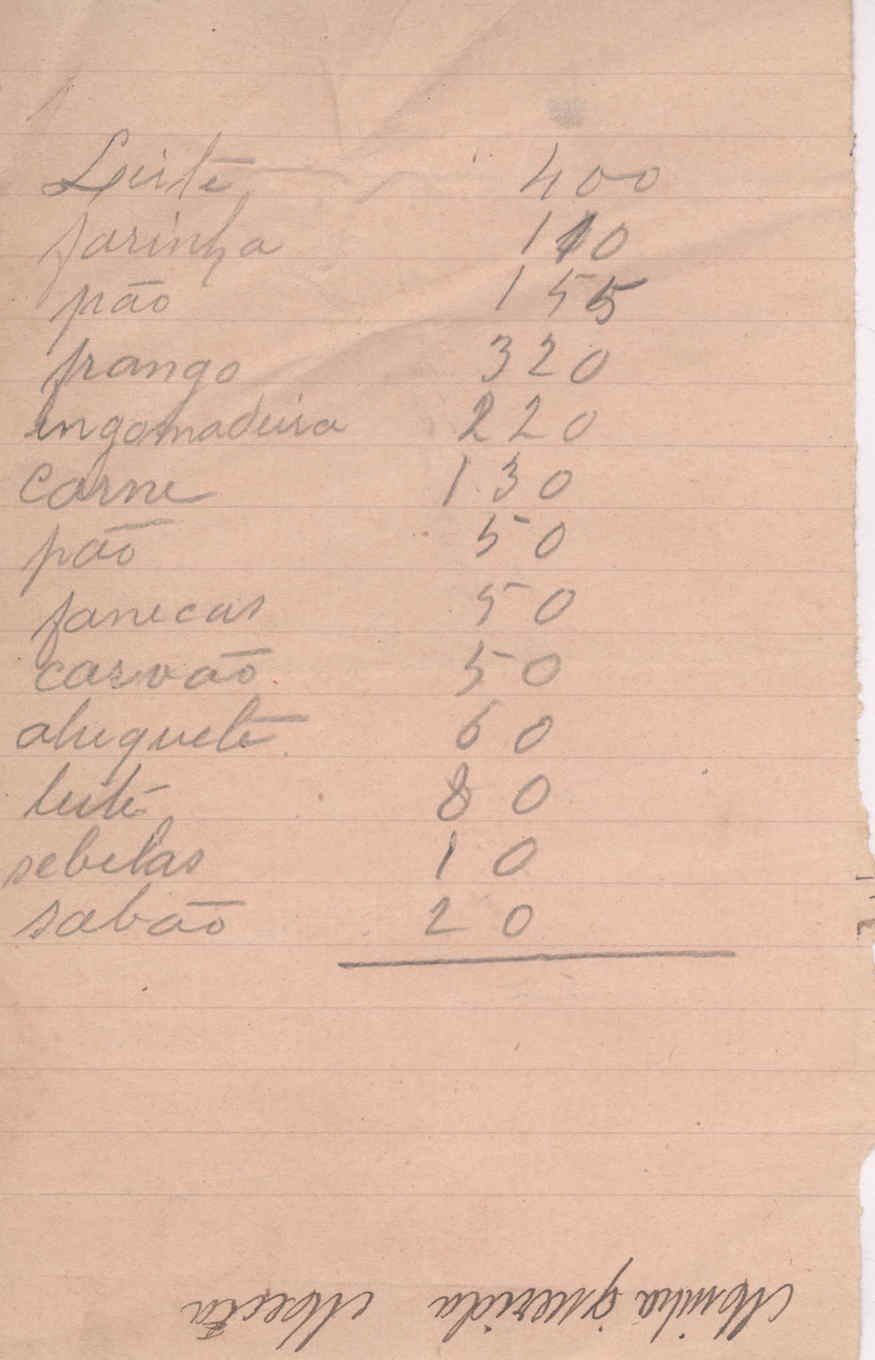 Leite 400
farinha 110
pão 155
frango 320
engomadeira 220
Carne 130
pão 50
fanecas 50
carvão 50
aluguete 60
leite 80
sebolas 10
sabão 20
Minha querida